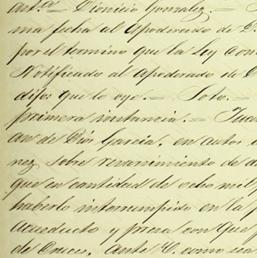 ant.º — Dionicio Gonzalez. —
ma fecha al Apoderado de D.
por el termino que la ley con
Notificado al apoderado de D
difos que lo oye. — Soto. —
primera instancia. — Jua
an de Dios Garcia, en autos
nez sobre resarcimiento de d
que en cantidad de ocho mil p
haberlo interrumpido en la p
acueducto y presa con que
de Cruces, Ante V. como sea